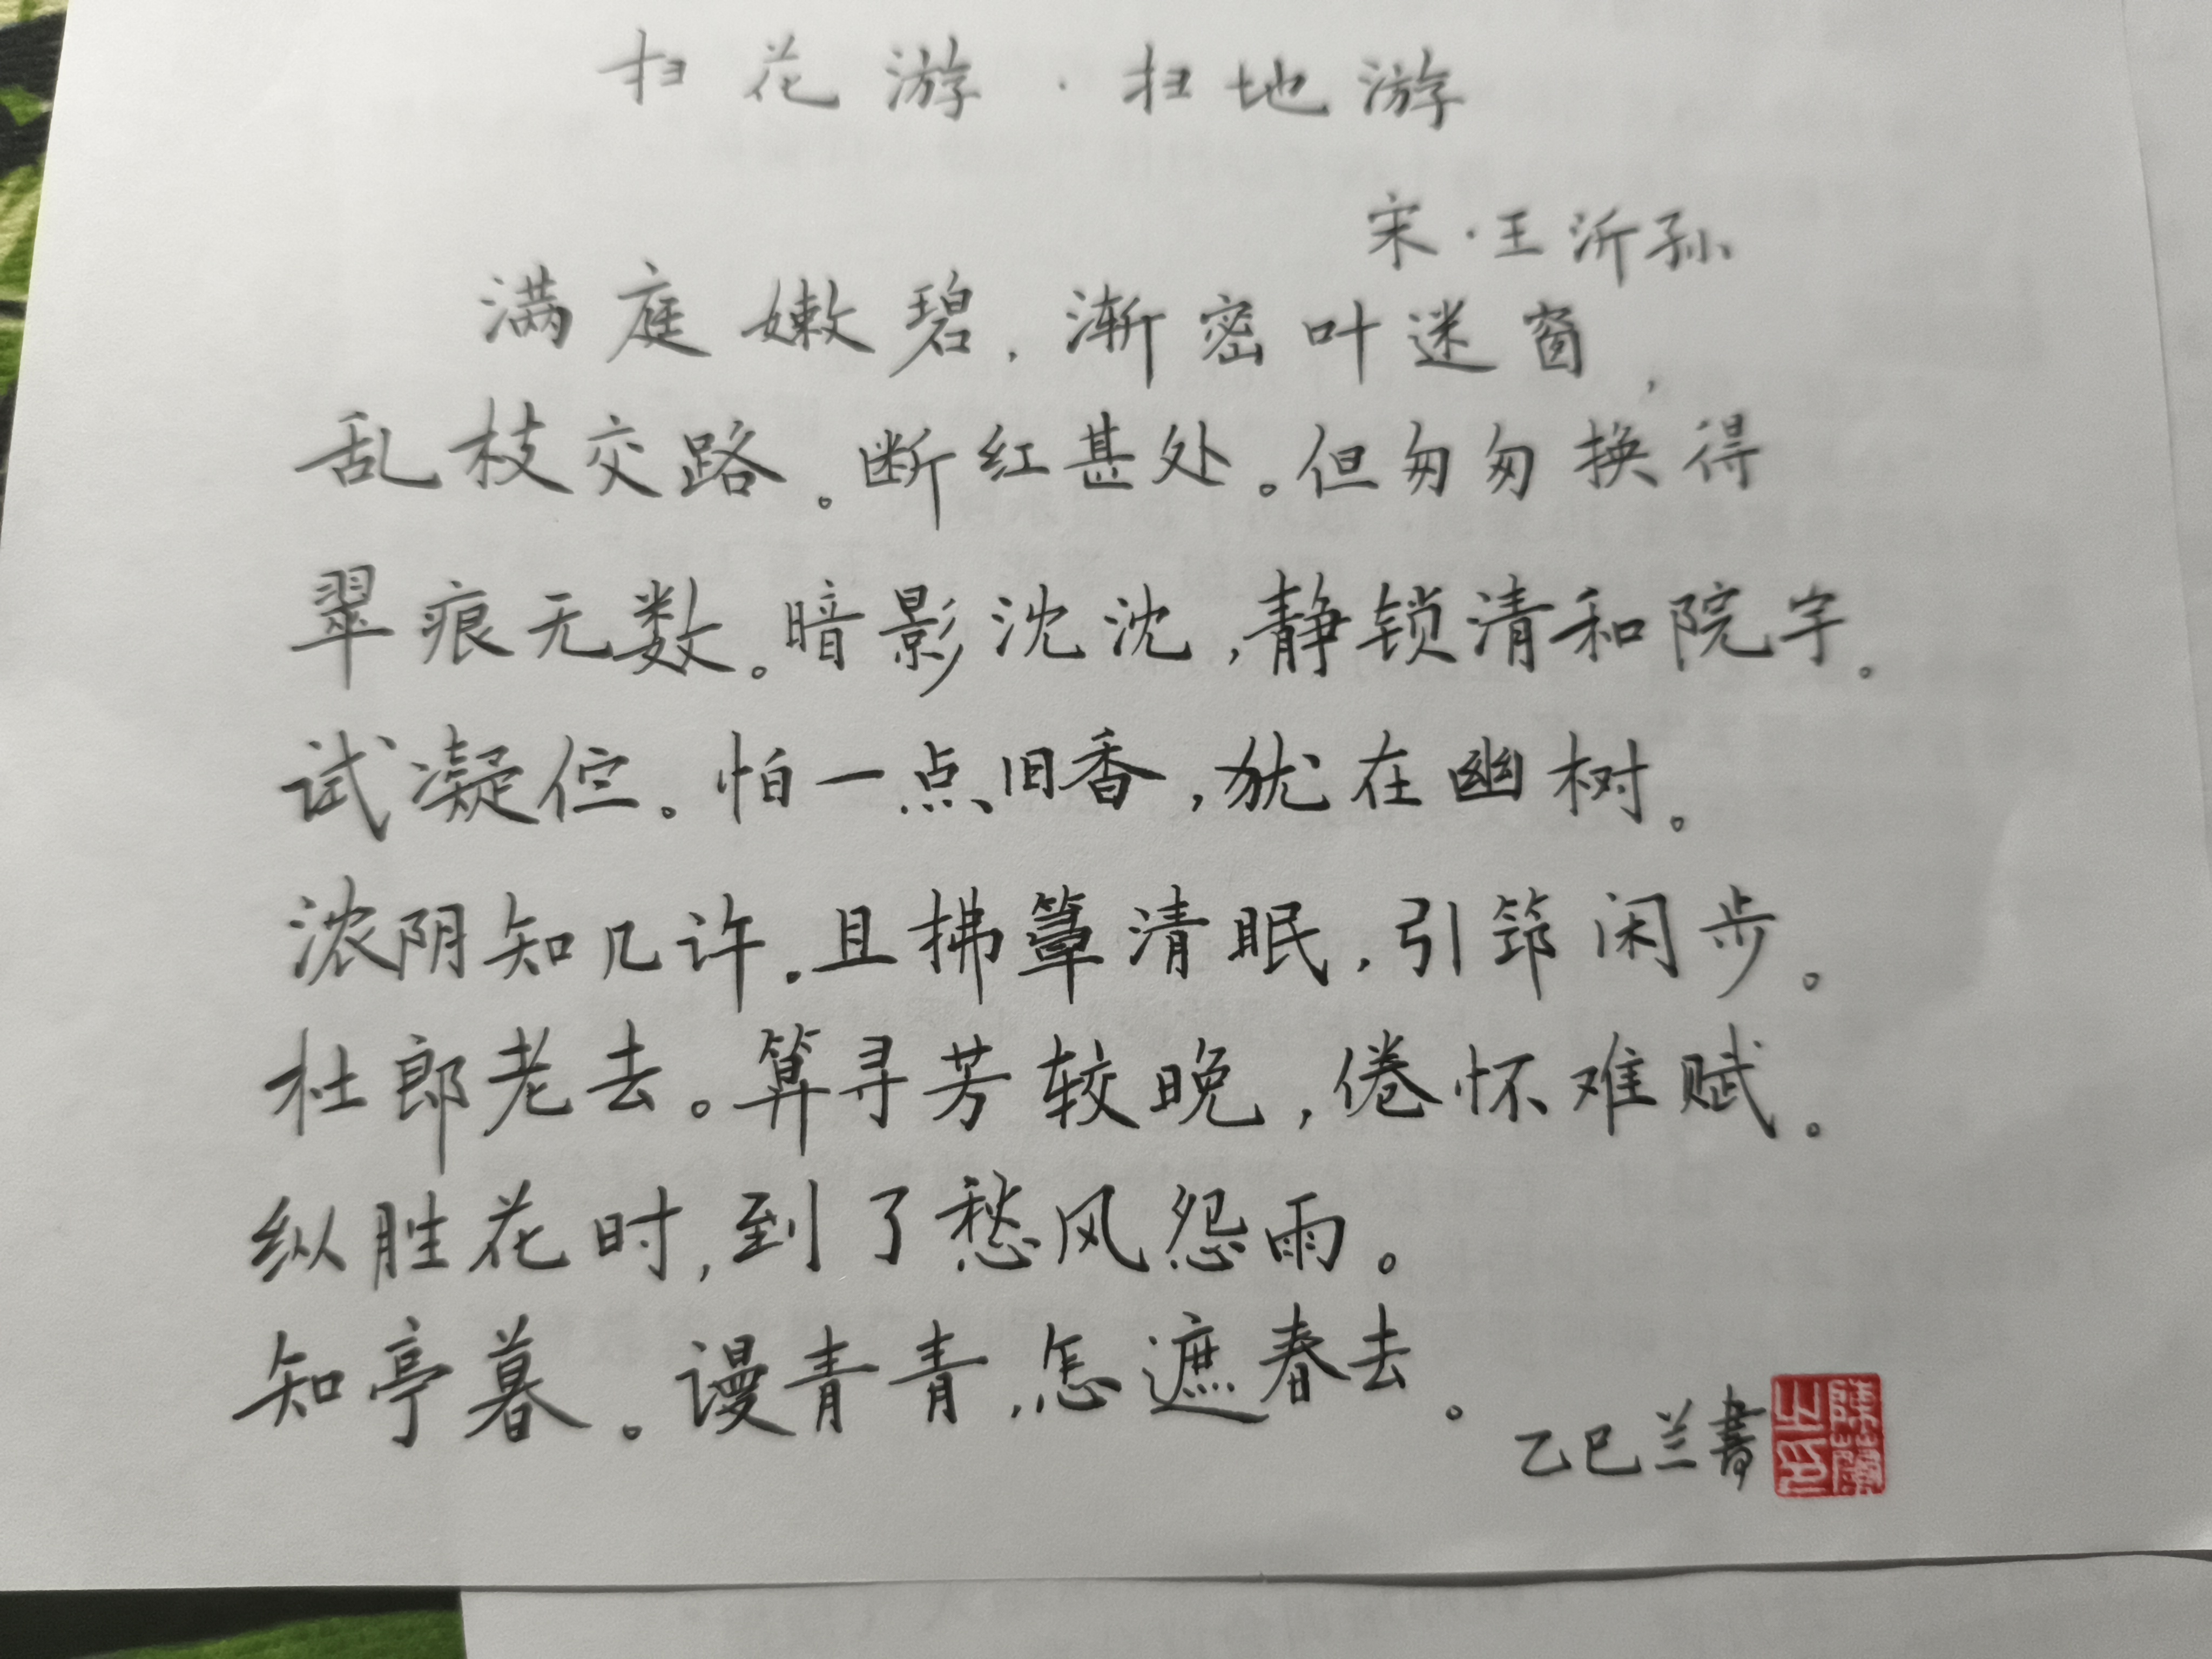 扫花游·扫地游
宋·王沂孙
满庭嫩碧，渐密叶迷窗，
乱枝交路。断红甚处。但匆匆换得
翠痕无数。暗影沈沈，静锁清和院宇。
试凝伫。怕一点旧香，犹在幽树。
浓阴知几许。且拂簟清眠，引筇闲步。
杜郎老去。算寻芳较晚，倦怀难赋。
纵胜花时，到了愁风怨雨。
知亭暮。谩青青，怎遮春去。
乙巳兰書